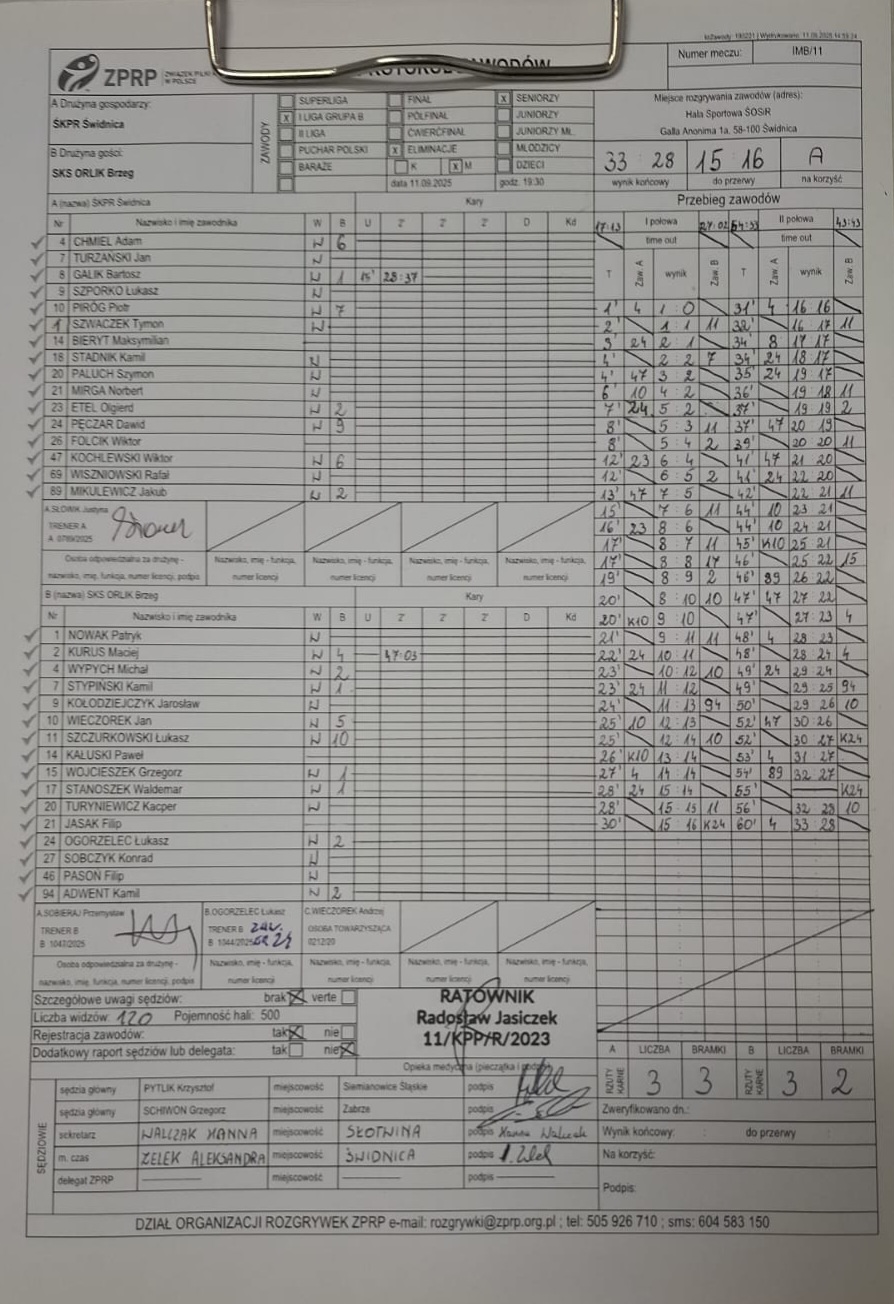 Numer meczu: IMB/11
ZPRP
A Drużyna gospodarzy:
ŚKPR Świdnica
B Drużyna gości:
SKS ORLIK Brzeg
ZAWODY
SUPERLIGA
x I LIGA GRUPA B
II LIGA
PUCHAR POLSKI
BARAŻE
FINAŁ
PÓŁFINAŁ
ĆWIERĆFINAŁ
x ELIMINACJE
K x M
data 11.09.2025 godz. 19:30
x SENIORZY
JUNIORZY
JUNIORZY MŁ.
MŁODZICY
DZIECI
Miejsce rozgrywania zawodów (adres):
Hala Sportowa ŚOSiR
Galla Anonima 1a, 58-100 Świdnica
33 : 28 15 : 16 A
wynik końcowy do przerwy na korzyść
A (nazwa) ŚKPR Świdnica Kary
Nr Nazwisko i imię zawodnika W B U 2' 2' 2' D Kd
4 CHMIEL Adam W 6
7 TURZAŃSKI Jan W
8 GALIK Bartosz W 1 15' 28:37
9 SZPORKO Łukasz W
10 PIRÓG Piotr W 7
1 SZWACZEK Tymon W
14 BIERYT Maksymilian
18 STADNIK Kamil W
20 PALUCH Szymon W
21 MIRGA Norbert W
23 ETEL Olgierd W 2
24 PĘCZAR Dawid W 9
26 FOLCIK Wiktor
47 KOCHLEWSKI Wiktor W 6
69 WISZNIOWSKI Rafał W
89 MIKULEWICZ Jakub W 2
A.SŁOWIK Justyna
TRENER A
A 0789/2025
Osoba odpowiedzialna za drużynę - Nazwisko, imię - funkcja, Nazwisko, imię - funkcja, Nazwisko, imię - funkcja, Nazwisko, imię - funkcja,
nazwisko, imię, funkcja, numer licencji, podpis numer licencji numer licencji numer licencji numer licencji
B (nazwa) SKS ORLIK Brzeg Kary
Nr Nazwisko i imię zawodnika W B U 2' 2' 2' D Kd
1 NOWAK Patryk W
2 KURUS Maciej W 4 47:03
4 WYPYCH Michał W 2
7 STYPIŃSKI Kamil W 1
9 KOŁODZIEJCZYK Jarosław W
10 WIECZOREK Jan W 5
11 SZCZURKOWSKI Łukasz W 10
14 KAŁUSKI Paweł
15 WOJCIESZEK Grzegorz W 1
17 STANOSZEK Waldemar W 1
20 TURYNIEWICZ Kacper W
21 JASAK Filip
24 OGORZELEC Łukasz W 2
27 SOBCZYK Konrad W
46 PASOŃ Filip W
94 ADWENT Kamil W 2
A.SOBIERAJ Przemysław
TRENER B
B 1047/2025
B.OGORZELEC Łukasz
TRENER B ZAW.
B 1044/2025 NR 24
C.WIECZOREK Andrzej
OSOBA TOWARZYSZĄCA
0212/20
Osoba odpowiedzialna za drużynę - Nazwisko, imię - funkcja, Nazwisko, imię - funkcja, Nazwisko, imię - funkcja, Nazwisko, imię - funkcja,
nazwisko, imię, funkcja, numer licencji, podpis numer licencji numer licencji numer licencji numer licencji
Przebieg zawodów
17:13 I połowa 27:02 54:33 II połowa 43:43
time out time out
T Zaw. A wynik Zaw. B T Zaw. A wynik Zaw. B
1' 4 1 : 0 31' 4 16 16
2' 1 : 1 11 32' 16 17 11
3' 24 2 : 1 34' 8 17 17
4' 2 : 2 7 34' 24 18 17
4' 47 3 : 2 35' 24 19 17
6' 10 4 : 2 36' 19 18 11
7' 24 5 : 2 37' 19 19 2
8' 5 : 3 11 37' 47 20 19
8' 5 : 4 2 39' 20 20 11
12' 23 6 : 4 41' 47 21 20
12' 6 : 5 2 41' 24 22 20
13' 47 7 : 5 42' 22 21 11
15' 7 : 6 11 44' 10 23 21
16' 23 8 : 6 44' 10 24 21
17' 8 : 7 11 45' K10 25 21
17' 8 : 8 17 46' 25 22 15
19' 8 : 9 2 46' 89 26 22
20' 8 : 10 10 47' 47 27 22
20' K10 9 : 10 47' 27 : 23 4
21' 9 : 11 11 48' 4 28 : 23
22' 24 10 : 11 48' 28 : 24 4
23' 10 : 12 10 49' 24 29 : 24
23' 24 11 : 12 49' 29 : 25 94
24' 11 : 13 94 50' 29 : 26 10
25' 10 12 : 13 52' 47 30 : 26
25' 12 : 14 10 52' 30 : 27 K24
26' K10 13 : 14 53' 4 31 : 27
27' 4 14 : 14 54' 89 32 : 27
28' 24 15 : 14 55' K24
28' 15 : 15 11 56' 32 : 28 10
30' 15 : 16 K24 60' 4 33 : 28
Szczegółowe uwagi sędziów: brak X verte
Liczba widzów: 120 Pojemność hali: 500
Rejestracja zawodów: tak X nie
Dodatkowy raport sędziów lub delegata: tak nie X
RATOWNIK
Radosław Jasiczek
11/KPP/R/2023
A LICZBA BRAMKI B LICZBA BRAMKI
RZUTY KARNE 3 3 RZUTY KARNE 3 2
SĘDZIOWIE
sędzia główny PYTLIK Krzysztof miejscowość Siemianowice Śląskie podpis
sędzia główny SCHIWON Grzegorz miejscowość Zabrze podpis
sekretarz WALCZAK HANNA miejscowość SŁOTWINA podpis Hanna Walczak
m. czas ZELEK ALEKSANDRA miejscowość ŚWIDNICA podpis
delegat ZPRP miejscowość podpis
Zweryfikowano dn.:
Wynik końcowy: : do przerwy: :
Na korzyść:
Podpis:
DZIAŁ ORGANIZACJI ROZGRYWEK ZPRP e-mail: rozgrywki@zprp.org.pl ; tel: 505 926 710 ; sms: 604 583 150